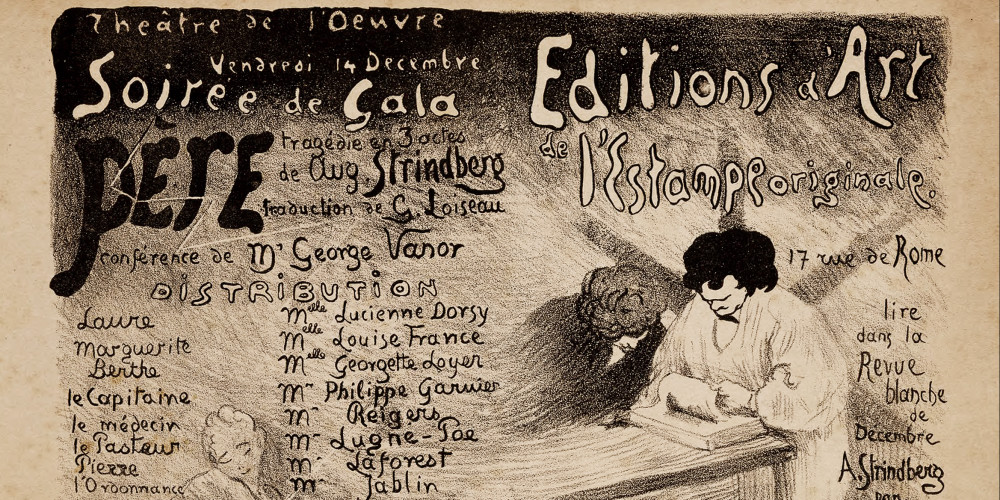 Théâtre de l'Oeuvre
Vendredi 14 Décembre
Soirée de Gala
PÈRE
tragédie en 3 actes
de Aug. Strindberg
traduction de G. Loiseau
conférence de Mr George Vanor
DISTRIBUTION
Laure Melle Lucienne Dorsy
Marguerite Melle Louise France
Berthe Melle Georgette Loyer
le Capitaine Mr Philippe Garnier
le médecin Mr Reigers
le Pasteur Mr Lugné-Poe
Pierre Mr Laforest
l'Ordonnance Mr Jablin
Editions d'Art
de l'Estampe originale.
17 rue de Rome
lire
dans la
Revue
blanche
de
Décembre
A. Strindberg
par